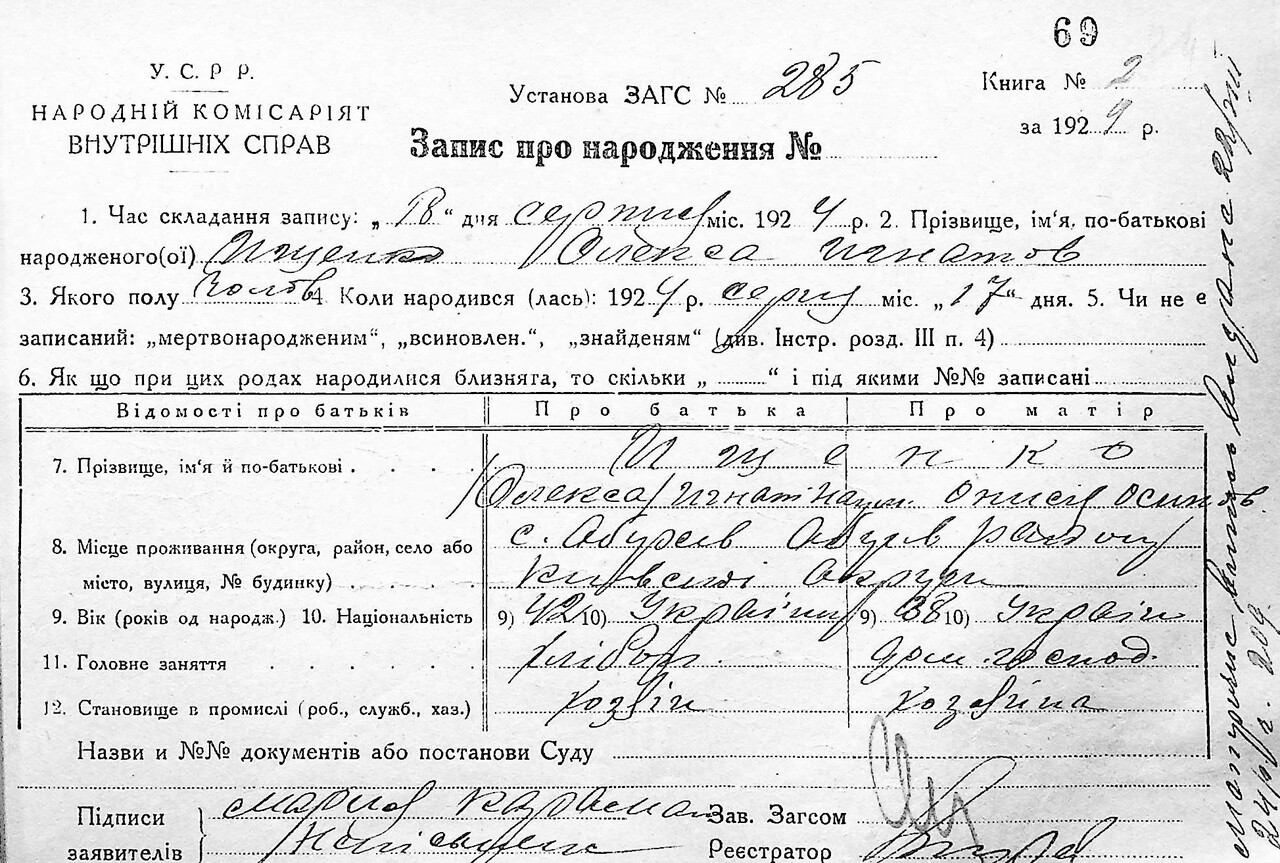 69
У. С. Р Р.
НАРОДНІЙ КОМІСАРІЯТ
ВНУТРІШНІХ СПРАВ
Установа ЗАГС № 285
Книга № 2
за 1924 р.
Запис про народження №
1. Час складання запису: „ “ дня серпня міс. 1924 р. 2. Прізвище, ім‘я, по-батькові
народженого(ої) Ищенко Олекса Игнатов
3. Якого полу Чолов 4 Коли народився (лась): 1924 р. серпн міс. „17“ дня. 5. Чи не є
записаний: „мертвонародженим“, „всиновлен.“, „знайденям“ (див. Інстр. розд. III п. 4)
6. Як що при цих родах народилися близняга, то скільки „ “ і під якими №№ записані
Відомості про батьків Про батька Про матір
7. Прізвище, ім‘я й по-батькові . . . . Ищенко
Олекса Игнат Онися Осипов.
8. Місце проживання (округа, район, село або с. Обухів Обухів району
місто, вулиця, № будинку) Київської Округи
9. Вік (років од народж.) 10. Національність 9) 42 10) Українц 9) 38 10) Україн
11. Головне заняття . . . . . . хлібор. дом. господ.
12. Становище в промислі (роб., служб., хаз.) хозяїн хозяїна
Назви и №№ документів або постанови Суду
Підписи Зав. Загсом
заявителів Реєстратор